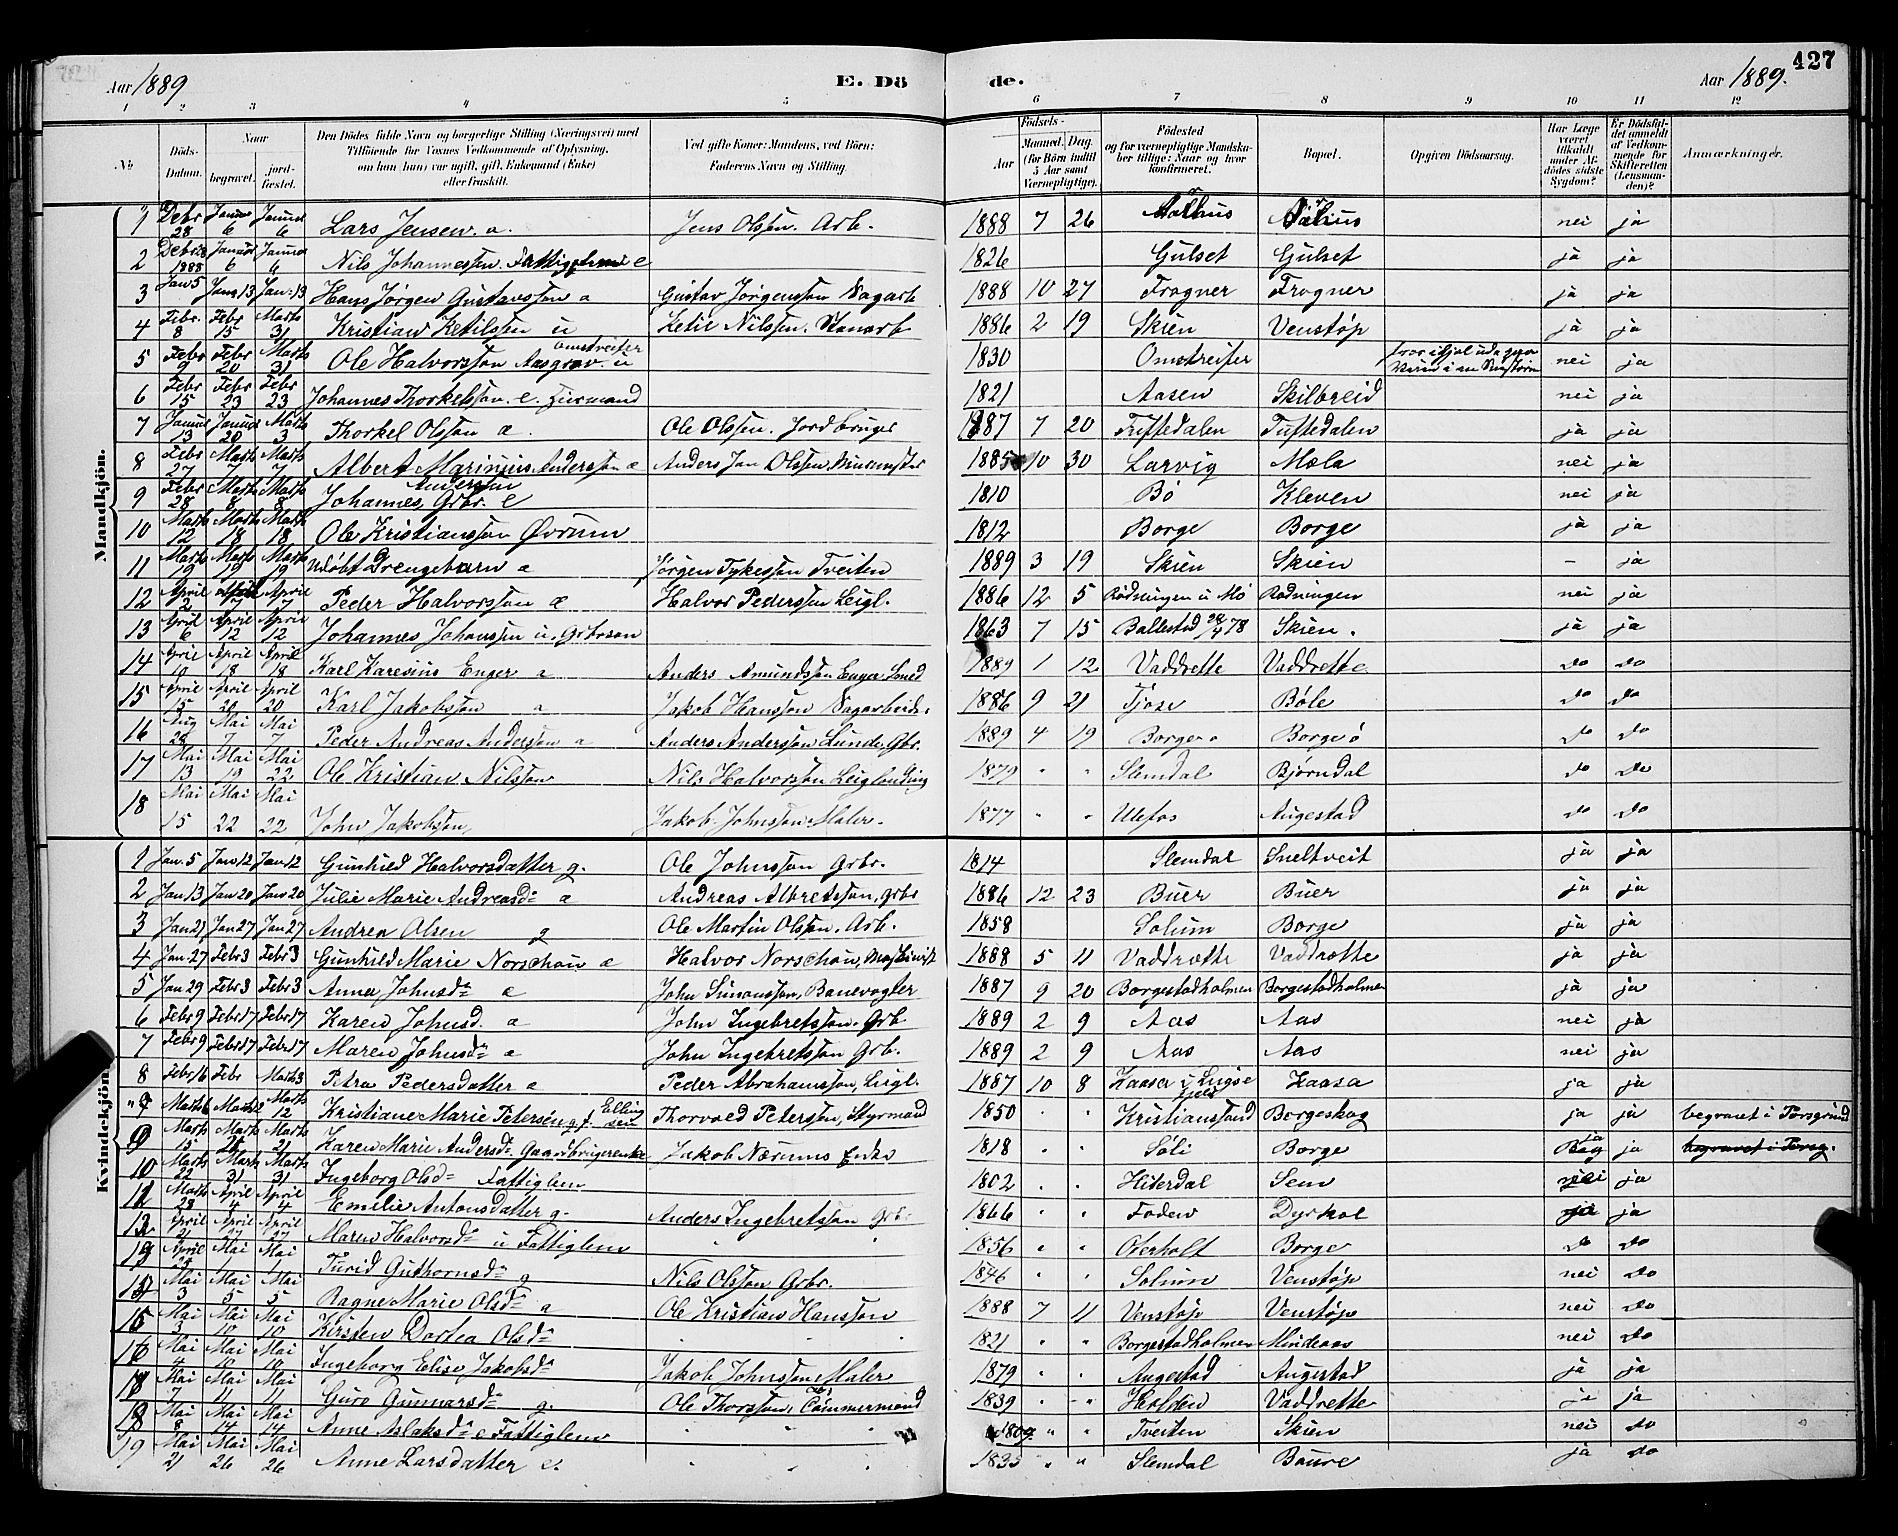 427
Aar 1889 E. Dö de. Aar 1889.
1 2 3 4 5 6 7 8 9 10 11 12
No Döds-Datum. Naar begravet. jordfæstet. Den Dödes fulde Navn og borgerlige Stilling (Næringsvei) med Tilföiende for Voxnes Vedkommende af Oplysning, om han (hun) var ugift, gift, Enkemand (Enke) eller fraskilt. Ved gifte Koner: Mandens, ved Börn: Faderens Navn og Stilling. Födsels- Aar Maaned. Dag. (for Börn indtil 5 Aar samt Værnepligtige). Födested og for værnepligtige Mandskaber tillige: Naar og hvor konfirmeret. Bopæl. Opgiven Dödsaarsag. Har Læge været tilkaldt under Afdödes sidste Sygdom? Er Dödsfaldet anmeldt af Vedkommende for Skifteretten (Lensmanden)? Anmærkninger.
Mandkjön.
1 Debr 28 Januar 6 Januar 6 Lars Jensen. a. Jens Olsen. Arb. 1888 7 26 nei ja
2 Debr 28 1888 Januar 6 Januar 6 Nils Johannessen. Fattiglem e 1826 Gulset Gulset ja ja
3 Jan 5 Jan 13 Jan. 13 Hans Jørgen Gustavssøn a Gustav Jørgenssøn Sagarb 1888 10 27 Frogner Frogner ja ja
4 Febr. 8 Febr 15 Marts 31 Kristian Ketilssen u Ketil Nilssen. 1886 2 19 Skien Venstøp ja ja
5 Febr 9 Febr 20 Marts 31 Ole Halvorssøn Aasgrav. u omstreifer 1830 Omstreifer nei ja
6 Febr 15 Febr 23 Febr 23 Johannes Thorkelssøn. e. Huusmand 1821 Aasen Skilbreid nei ja
7 Januar 13 Januar 20 Marts 3 Thorkel Olssøn a. Ole Olssen. Jordbruger 1887 7 20 Tuftedalen Tuftedalen ja ja
8 Febr 27 Marts 7 Marts 7 Albert Marinius Anderssøn a Anders Jan Olssen, Murmester 1885 10 30 Larvig Mæla nei ja
9 Febr 28 Marts 8 Marts 8 Johannes Anderssøn Grbr. e 1810 Bø Kleven nei ja
10 Marts 12 Marts 18 Marts 18 Ole Kristianssøn Øvrum 1812 Borge Borge ja ja
11 Marts 19 Marts 19 Marts 19 Udøbt Drengebarn a Jørgen Tykessøn Tveiten 1889 3 19 Skien Skien - ja
12 April 2 April 7 April 7 Peder Halvorssøn a Halvor Pederssøn Leigl. 1886 12 5 Rødningen i Mo Rødningen nei ja
13 April 6 April 12 April 12 Johannes Johanssen u. Grbrsøn 1863 7 15 Ballestad 28/4 78 Skien. ja ja
14 April 10 April 18 April 18 Karl Karesius Enger a Anders Amundssøn Enger Smed 1889 1 12 Vaddrette Vaddrette do do
15 April 15 April 20 April 20 Karl Jakobssøn a Jakob Hanssøn Sagarbeider 1886 9 21 Tjose Bøle do do
16 Aug 28 Mai 7 Mai 7 Peder Andreas Anderssøn a Anders Anderssøn Lunde, Gbr. 1889 4 19 Borgeø Borgeø do do
17 Mai 13 Mai 19 Mai 22 Ole Kristian Nilssøn Nils Halvorssøn Leiglending 1879 " " Slemdal Bjørndal do do
18 Mai 15 Mai 22 Mai 22 John Jakobssøn, Jakob Johnssøn Maler. 1877 " " Ulefos Augestad do do
Kvindekjön.
1 Jan. 5 Jan 12 Jan. 12 Gunhild Halvorsdatter g. Ole Johnssøn Grbr. 1814 Slemdal Sneltveit ja ja
2 Jan 13 Jan 20 Jan 20 Julie Marie Andreasdr a Andreas Albretssøn, Grbr 1886 12 23 Buer Buer ja ja
3 Jan 21 Jan 27 Jan 27 Andrea Olsen g Ole Martin Olssøn. Arb. 1858 Solum Borge ja ja
4 Jan. 27 Febr 3 Febr 3 Gunhild Marie Norschau a Halvor Norschau, Maskinist 1888 5 11 Vaddrætte Vaddrætte ja ja
5 Jan 29 Febr 3 Febr 3 Anna Johnsdr a John Simonssøn, Banevogter 1887 9 20 Borgestadholmen Borgestadholmen ja ja
6 Febr 9 Febr 17 Febr 17 Karen Johnsd. a John Ingebretssøn. Grb 1889 2 9 Aas Aas nei ja
7 Febr 9 Febr 17 Febr 17 Maren Johnsdr a John Ingebretssøn Grb. 1889 2 9 Aas Aas nei ja
8 Febr 16 Febr Marts 3 Petra Pedersdatter a Peder Abrahamssøn, Leigl. 1887 10 8 Kaasa i Kaasa ja ja
9 Marts 6 Marts 12 Marts 12 Kristiane Marie Petersen g. f. Ellingsen Thorvald Peterssen, Styrmand 1850 " " Kristianssand Borgeskog ja ja begravet i Porsgrund
9 Marts 15 Marts 21 Marts 21 Karen Marie Andersdr Gaardbrugerenke Jakob Nærums Enke 1818 " " Soli Borge ja ja begravet i Porsg.
10 Marts 22 Marts 31 Marts 31 Ingeborg Olsdr Fattiglem 1802 " " Hiterdal Sem nei ja
11 Marts 28 April 4 April 4 Emilie Antonsdatter g. Anders Ingebretssøn Grbr 1866 " " Foden Dyrkol ja ja
12 April 21 April 27 April 27 Maren Halvorsdr u Fattiglem " " 1856 " " Oterholt Borge do do
13 April 24 Mai 1 Mai 1 Turid Guthormsdr g Nils Olssøn Grbr. 1846 " " Solum Venstøp nei do
14 Mai 3 Mai 5 Mai 5 Ragne Marie Olsdr a Ole Kristian Hanssøn 1888 7 11 Venstøp Venstøp nei do
15 Mai 3 Mai 10 Mai 10 Kirsten Dortea Olsdr " " " 1821 " " Borgestadholmen Mindeaas nei do
16 Mai 4 Mai 10 Mai 10 Ingeborg Elise Jakobsdr Jakob Johnssøn Maler 1879 " " Augestad Augestad ja ja
17 Mai 7 Mai 11 Mai 11 Guro Gunnarsdr g. Ole Thorssøn, Tømmermand 1839 " " Holden Vaddrette ja ja
18 Mai 8 Mai 14 Mai 14 Anne Aslaksdr e Fattiglem " " " 1809 " " Tveiten Skien nei do
19 Mai 21 Mai 26 Mai 26 Anne Larsdatter e. " " " 1835 " " Slemdal Baure ja do